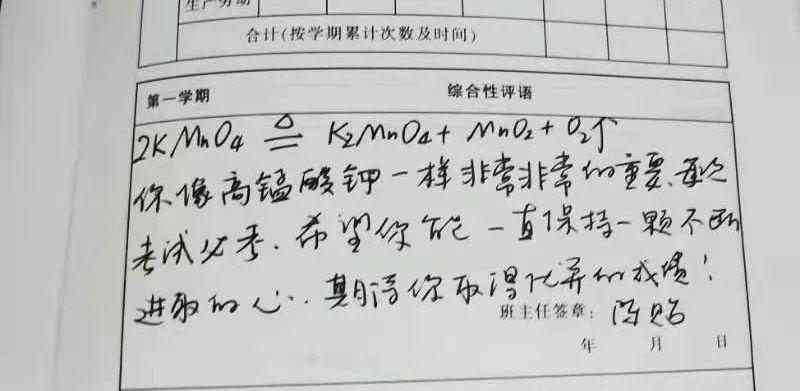 生产劳动
合计(按学期累计次数及时间)
第一学期 综合性评语
2KMnO4 ≜ K2MnO4+ MnO2+ O2↑
你像高锰酸钾一样非常非常的重要、每次
考试必考、希望你能一直保持一颗不断
进取的心、期待你取得优异的成绩!
班主任签章: 陈贻
年 月 日